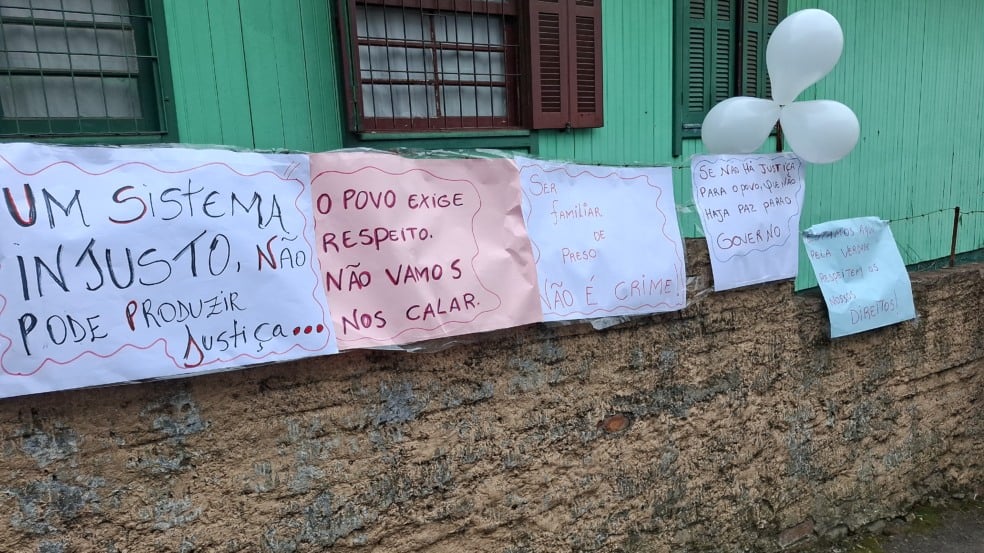 UM SiSTEMA
iNJUSTO, NÃO
PODE PRODUZIR
JUSTIÇA...
O POVO EXIGE
RESPEITO.
NÃO VAMOS
NOS CALAR.
SER
familiar
DE
PRESO
NÃO É CRIME!!
SE NÃO HÁ JUSTIÇA
PARA O POVO, QUE NÃO
HAJA PAZ PARA O
GOVERNO
ESTAMOS AQUI
PELA VERDADE
RESPEITEM OS
NOSSOS
DIREITOS!